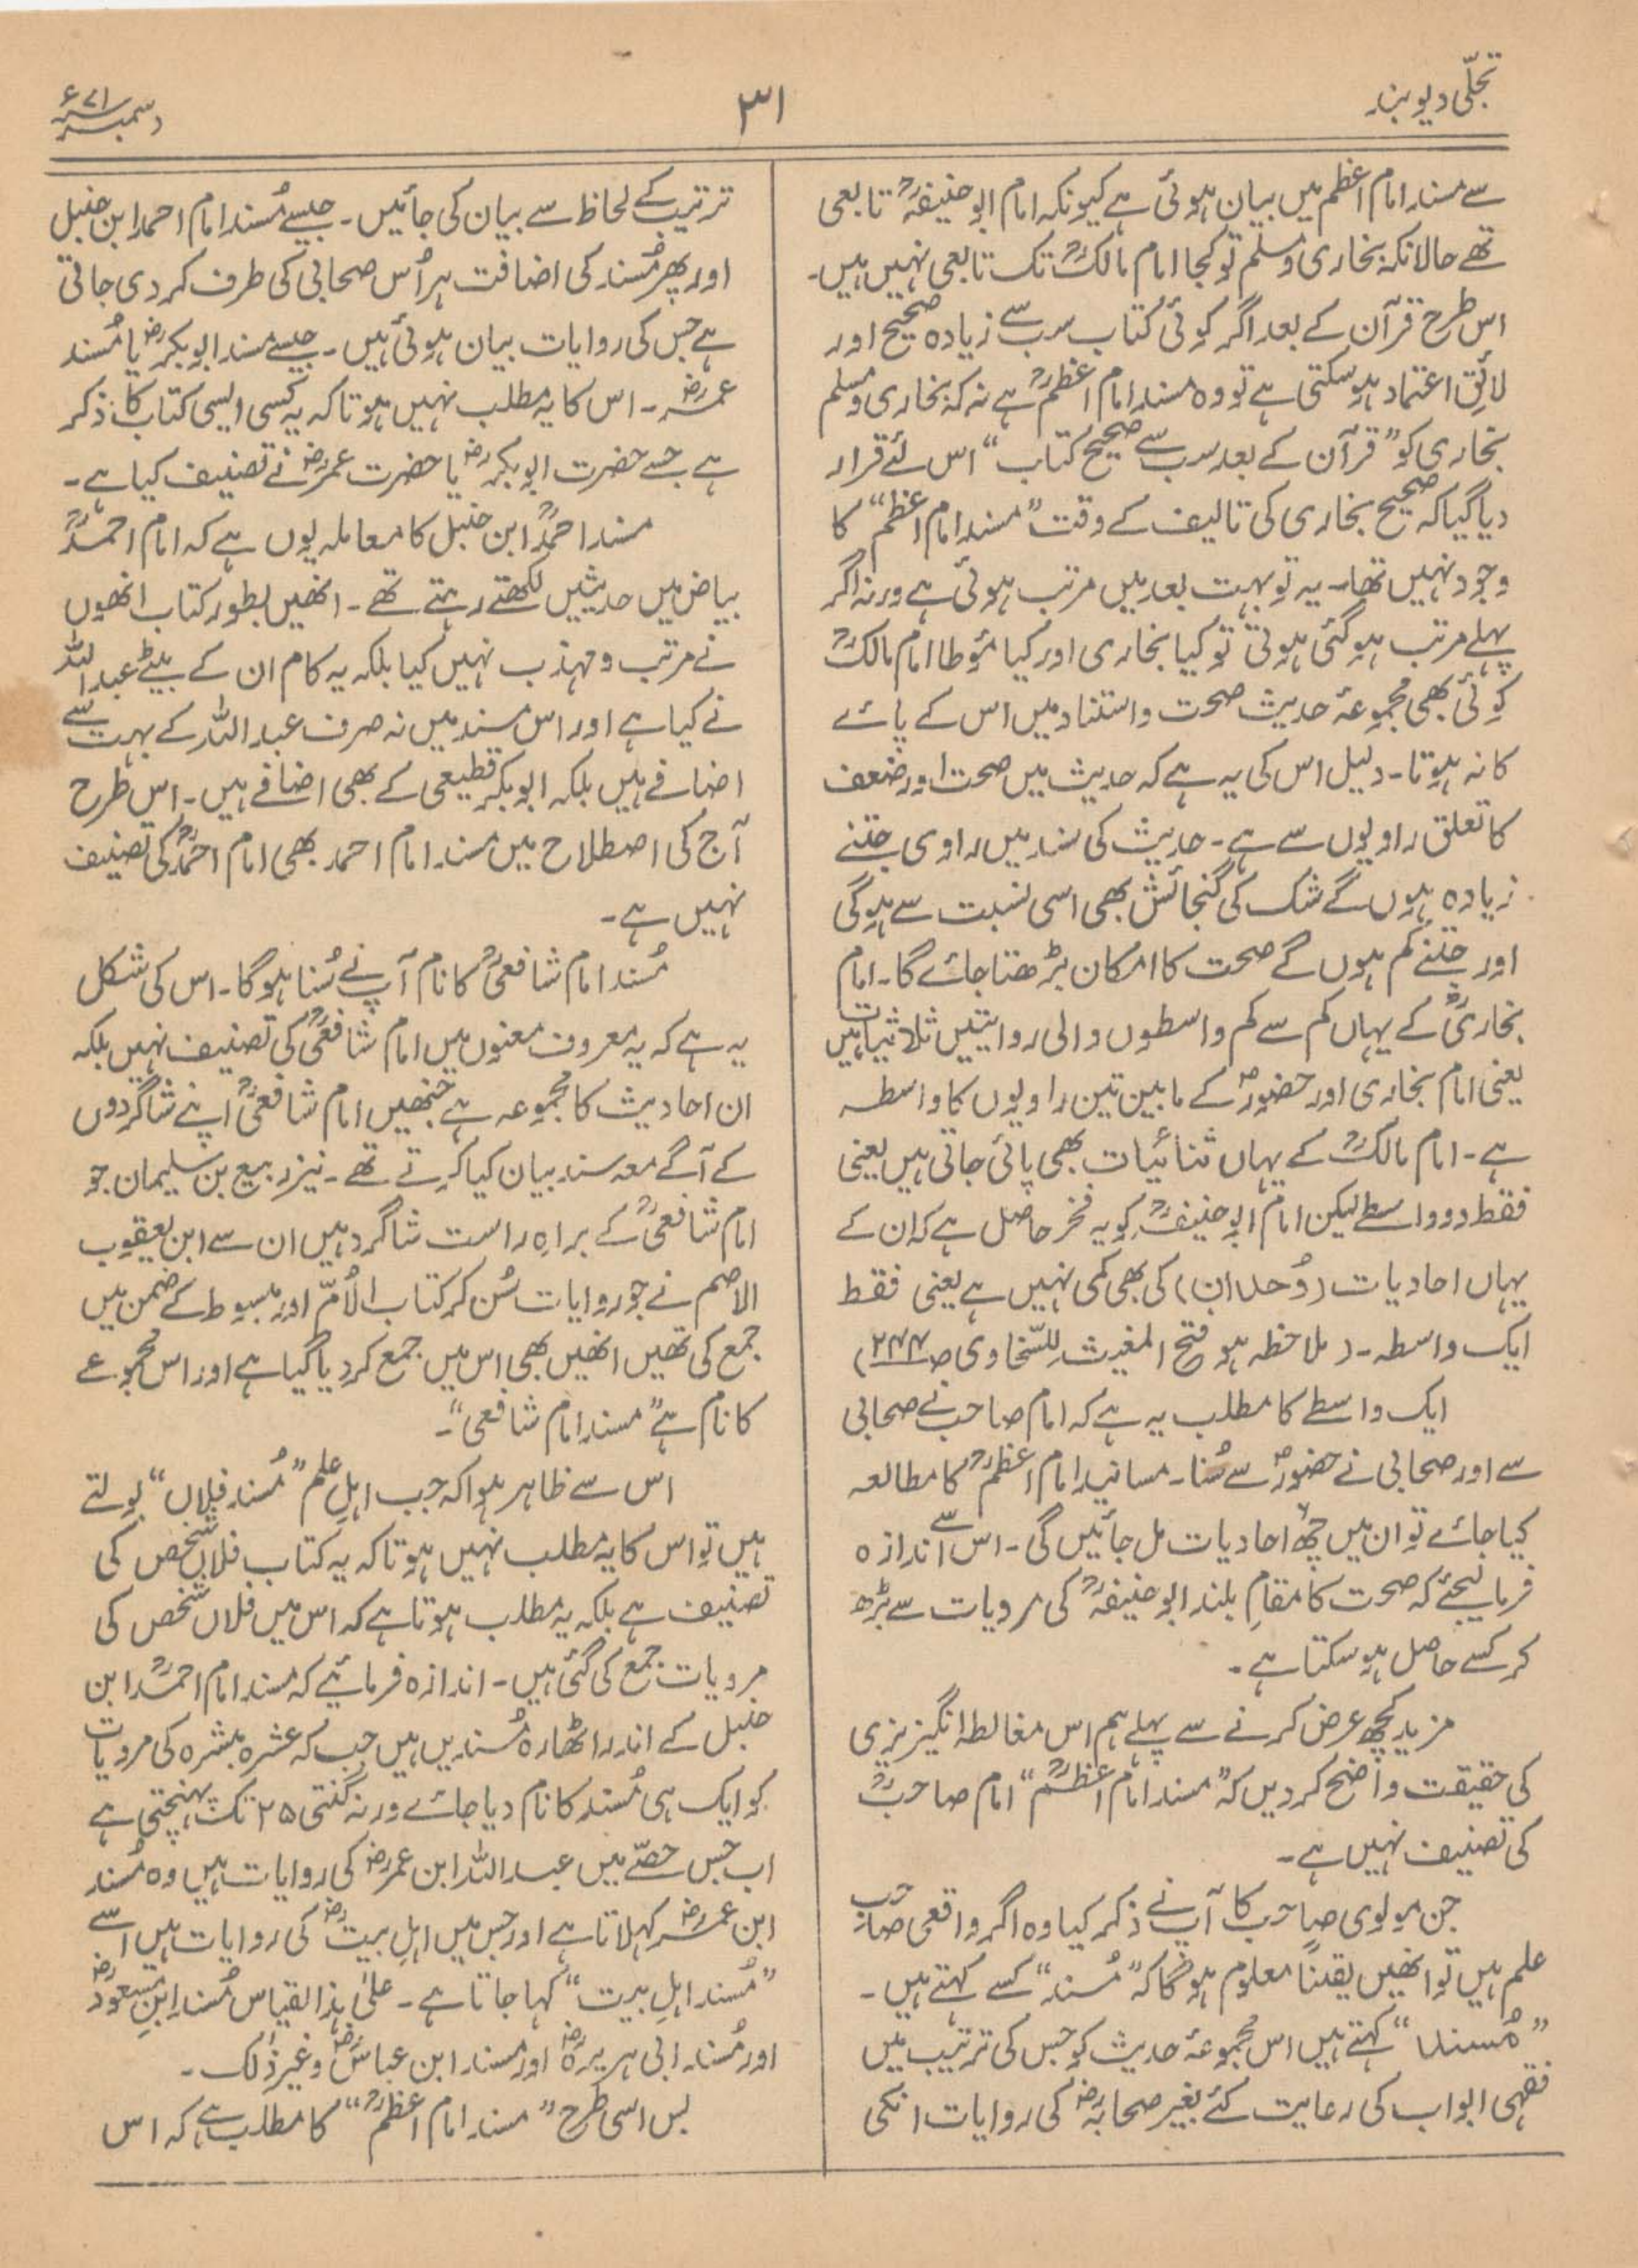 تجلّی دیوبند
۳۱
دسمبر ۷۱ء
سے مسند امام اعظم میں بیان ہوئی ہے کیونکہ امام ابو حنیفہؒ تابعی
تھے حالانکہ بخاری و مسلم تو کجا امام مالکؒ تک تابعی نہیں ہیں۔
اس طرح قرآن کے بعد اگر کوئی کتاب سب سے زیادہ صحیح اور
لائقِ اعتماد ہو سکتی ہے تو وہ مسند امام اعظمؒ ہے نہ کہ بخاری و مسلم
بخاری کو ”قرآن کے بعد سب سے صحیح کتاب“ اس لئے قرار
دیا گیا کہ صحیح بخاری کی تالیف کے وقت ”مسند امام اعظم“ کا
وجود نہیں تھا۔ یہ تو بہت بعد میں مرتب ہوئی ہے ورنہ اگر
پہلے مرتب ہو گئی ہوتی تو کیا بخاری اور کیا مؤطا امام مالکؒ
کوئی بھی مجموعۂ حدیث صحت و استناد میں اس کے پائے
کا نہ ہوتا۔ دلیل اس کی یہ ہے کہ حدیث میں صحت اور ضعف
کا تعلق راویوں سے ہے۔ حدیث کی سند میں راوی جتنے
زیادہ ہوں گے شک کی گنجائش بھی اسی نسبت سے ہوگی
اور جتنے کم ہوں گے صحت کا امکان بڑھتا جائے گا۔ امام
بخاریؒ کے یہاں کم سے کم واسطوں والی روایتیں ثلاثیات ہیں
یعنی امام بخاری اور حضورؐ کے مابین تین راویوں کا واسطہ
ہے۔ امام مالکؒ کے یہاں ثنائیات بھی پائی جاتی ہیں یعنی
فقط دو واسطے لیکن امام ابو حنیفہؒ کو یہ فخر حاصل ہے کہ ان کے
یہاں احادیات (وُحدان) کی بھی کمی نہیں ہے یعنی فقط
ایک واسطہ۔ (ملاحظہ ہو فتح المغیث للسّخاوی ص۲۴۴)
ایک واسطے کا مطلب یہ ہے کہ امام صاحب نے صحابی
سے اور صحابی نے حضورؐ سے سُنا۔ مسانید امام اعظمؒ کا مطالعہ
کیا جائے تو ان میں چھ احادیات مل جائیں گی۔ اس سے اندازہ
فرما لیجئے کہ صحت کا مقامِ بلند ابو حنیفہؒ کی مرویات سے بڑھ
کر کسے حاصل ہو سکتا ہے۔
مزید کچھ عرض کرنے سے پہلے ہم اس مغالطہ انگیزیزی
کی حقیقت واضح کر دیں کہ ”مسند امام اعظمؒ“ امام صاحبؒ
کی تصنیف نہیں ہے۔
جن مولوی صاحب کا آپ نے ذکر کیا وہ اگر واقعی صاحب
علم ہیں تو انھیں یقیناً معلوم ہوگا کہ ”مُسند“ کسے کہتے ہیں۔
”مُسند“ کہتے ہیں اس مجموعۂ حدیث کو جس کی ترتیب میں
فقہی ابواب کی رعایت کئے بغیر صحابہؓ کی روایات انکی
ترتیب کے لحاظ سے بیان کی جائیں۔ جیسے مُسند امام احمد ابن حنبل
اور پھر مُسند کی اضافت ہر اُس صحابی کی طرف کر دی جاتی
ہے جس کی روایات بیان ہوئی ہیں۔ جیسے مسند ابو بکرؓ یا مُسند
عمرؓ۔ اس کا یہ مطلب نہیں ہوتا کہ یہ کسی ایسی کتاب کا ذکر
ہے جسے حضرت ابو بکرؓ یا حضرت عمرؓ نے تصنیف کیا ہے۔
مسند احمدؒ ابن حنبل کا معاملہ یوں ہے کہ امام احمدؒ
بیاض میں حدیثیں لکھتے رہتے تھے۔ انھیں بطور کتاب انھوں
نے مرتب و مہذب نہیں کیا بلکہ یہ کام ان کے بیٹے عبد اللہ
نے کیا ہے اور اس مسند میں نہ صرف عبد اللہ کے بہت سے
اضافے ہیں بلکہ ابو بکر قطیعی کے بھی اضافے ہیں۔ اس طرح
آج کی اصطلاح میں مسند امام احمد بھی امام احمدؒ کی تصنیف
نہیں ہے۔
مُسند امام شافعیؒ کا نام آپ نے سُنا ہوگا۔ اس کی شکل
یہ ہے کہ یہ معروف معنوں میں امام شافعیؒ کی تصنیف نہیں بلکہ
ان احادیث کا مجموعہ ہے جنھیں امام شافعیؒ اپنے شاگردوں
کے آگے معہ سند بیان کیا کرتے تھے۔ نیز ربیع بن سلیمان جو
امام شافعیؒ کے براہِ راست شاگرد ہیں ان سے ابن یعقوب
الاصم نے جو روایات سُن کر کتاب الاُمّ اور مبسوط کے ضمن میں
جمع کی تھیں انھیں بھی اس میں جمع کر دیا گیا ہے اور اس مجموعے
کا نام ہے ”مسند امام شافعی“۔
اس سے ظاہر ہوا کہ جب اہلِ علم ”مُسند فلاں“ بولتے
ہیں تو اس کا یہ مطلب نہیں ہوتا کہ یہ کتاب فلاں شخص کی
تصنیف ہے بلکہ یہ مطلب ہوتا ہے کہ اس میں فلاں شخص کی
مرویات جمع کی گئی ہیں۔ اندازہ فرمائیے کہ مسند امام احمدؒ ابن
حنبل کے اندر اٹھارہ مُسندیں ہیں جب کہ عشرہ مبشرہ کی مرویات
کو ایک ہی مُسند کا نام دیا جائے ورنہ گنتی ۲۵ تک پہنچتی ہے
اب جس حصّے میں عبد اللہ ابن عمرؓ کی روایات ہیں وہ مُسند
ابن عمرؓ کہلاتا ہے اور جس میں اہلِ بیتؓ کی روایات ہیں اسے
”مُسند اہلِ بیت“ کہا جاتا ہے۔ علیٰ ہذا القیاس مُسند ابنِ مسعودؓ
اور مُسند ابی ہریرہؓ اور مسند ابن عباسؓ وغیر ذٰلک۔
بس اسی طرح ”مسند امام اعظمؒ“ کا مطلب ہے کہ اس